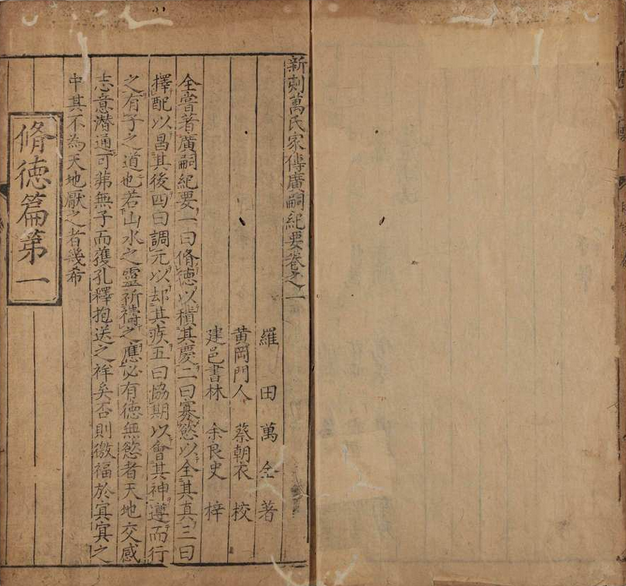 新刻萬氏家傳廣嗣紀要卷之一
羅田萬全著
黄岡門人蔡朝衣校
建邑書林余良史梓
全嘗著廣嗣紀要一曰脩德以積其慶二曰寡慾以全其真三曰
擇配以昌其後四曰調元以却其疾五曰協期以會其神遵而行
之有子之道也若山水之靈祈禱之應必有德無慾者天地交感
志意潛通可苐無子而獲孔釋抱送之祥矣否則徼福於㝠㝠之
中其不為天地厭之者幾希
脩德篇第一